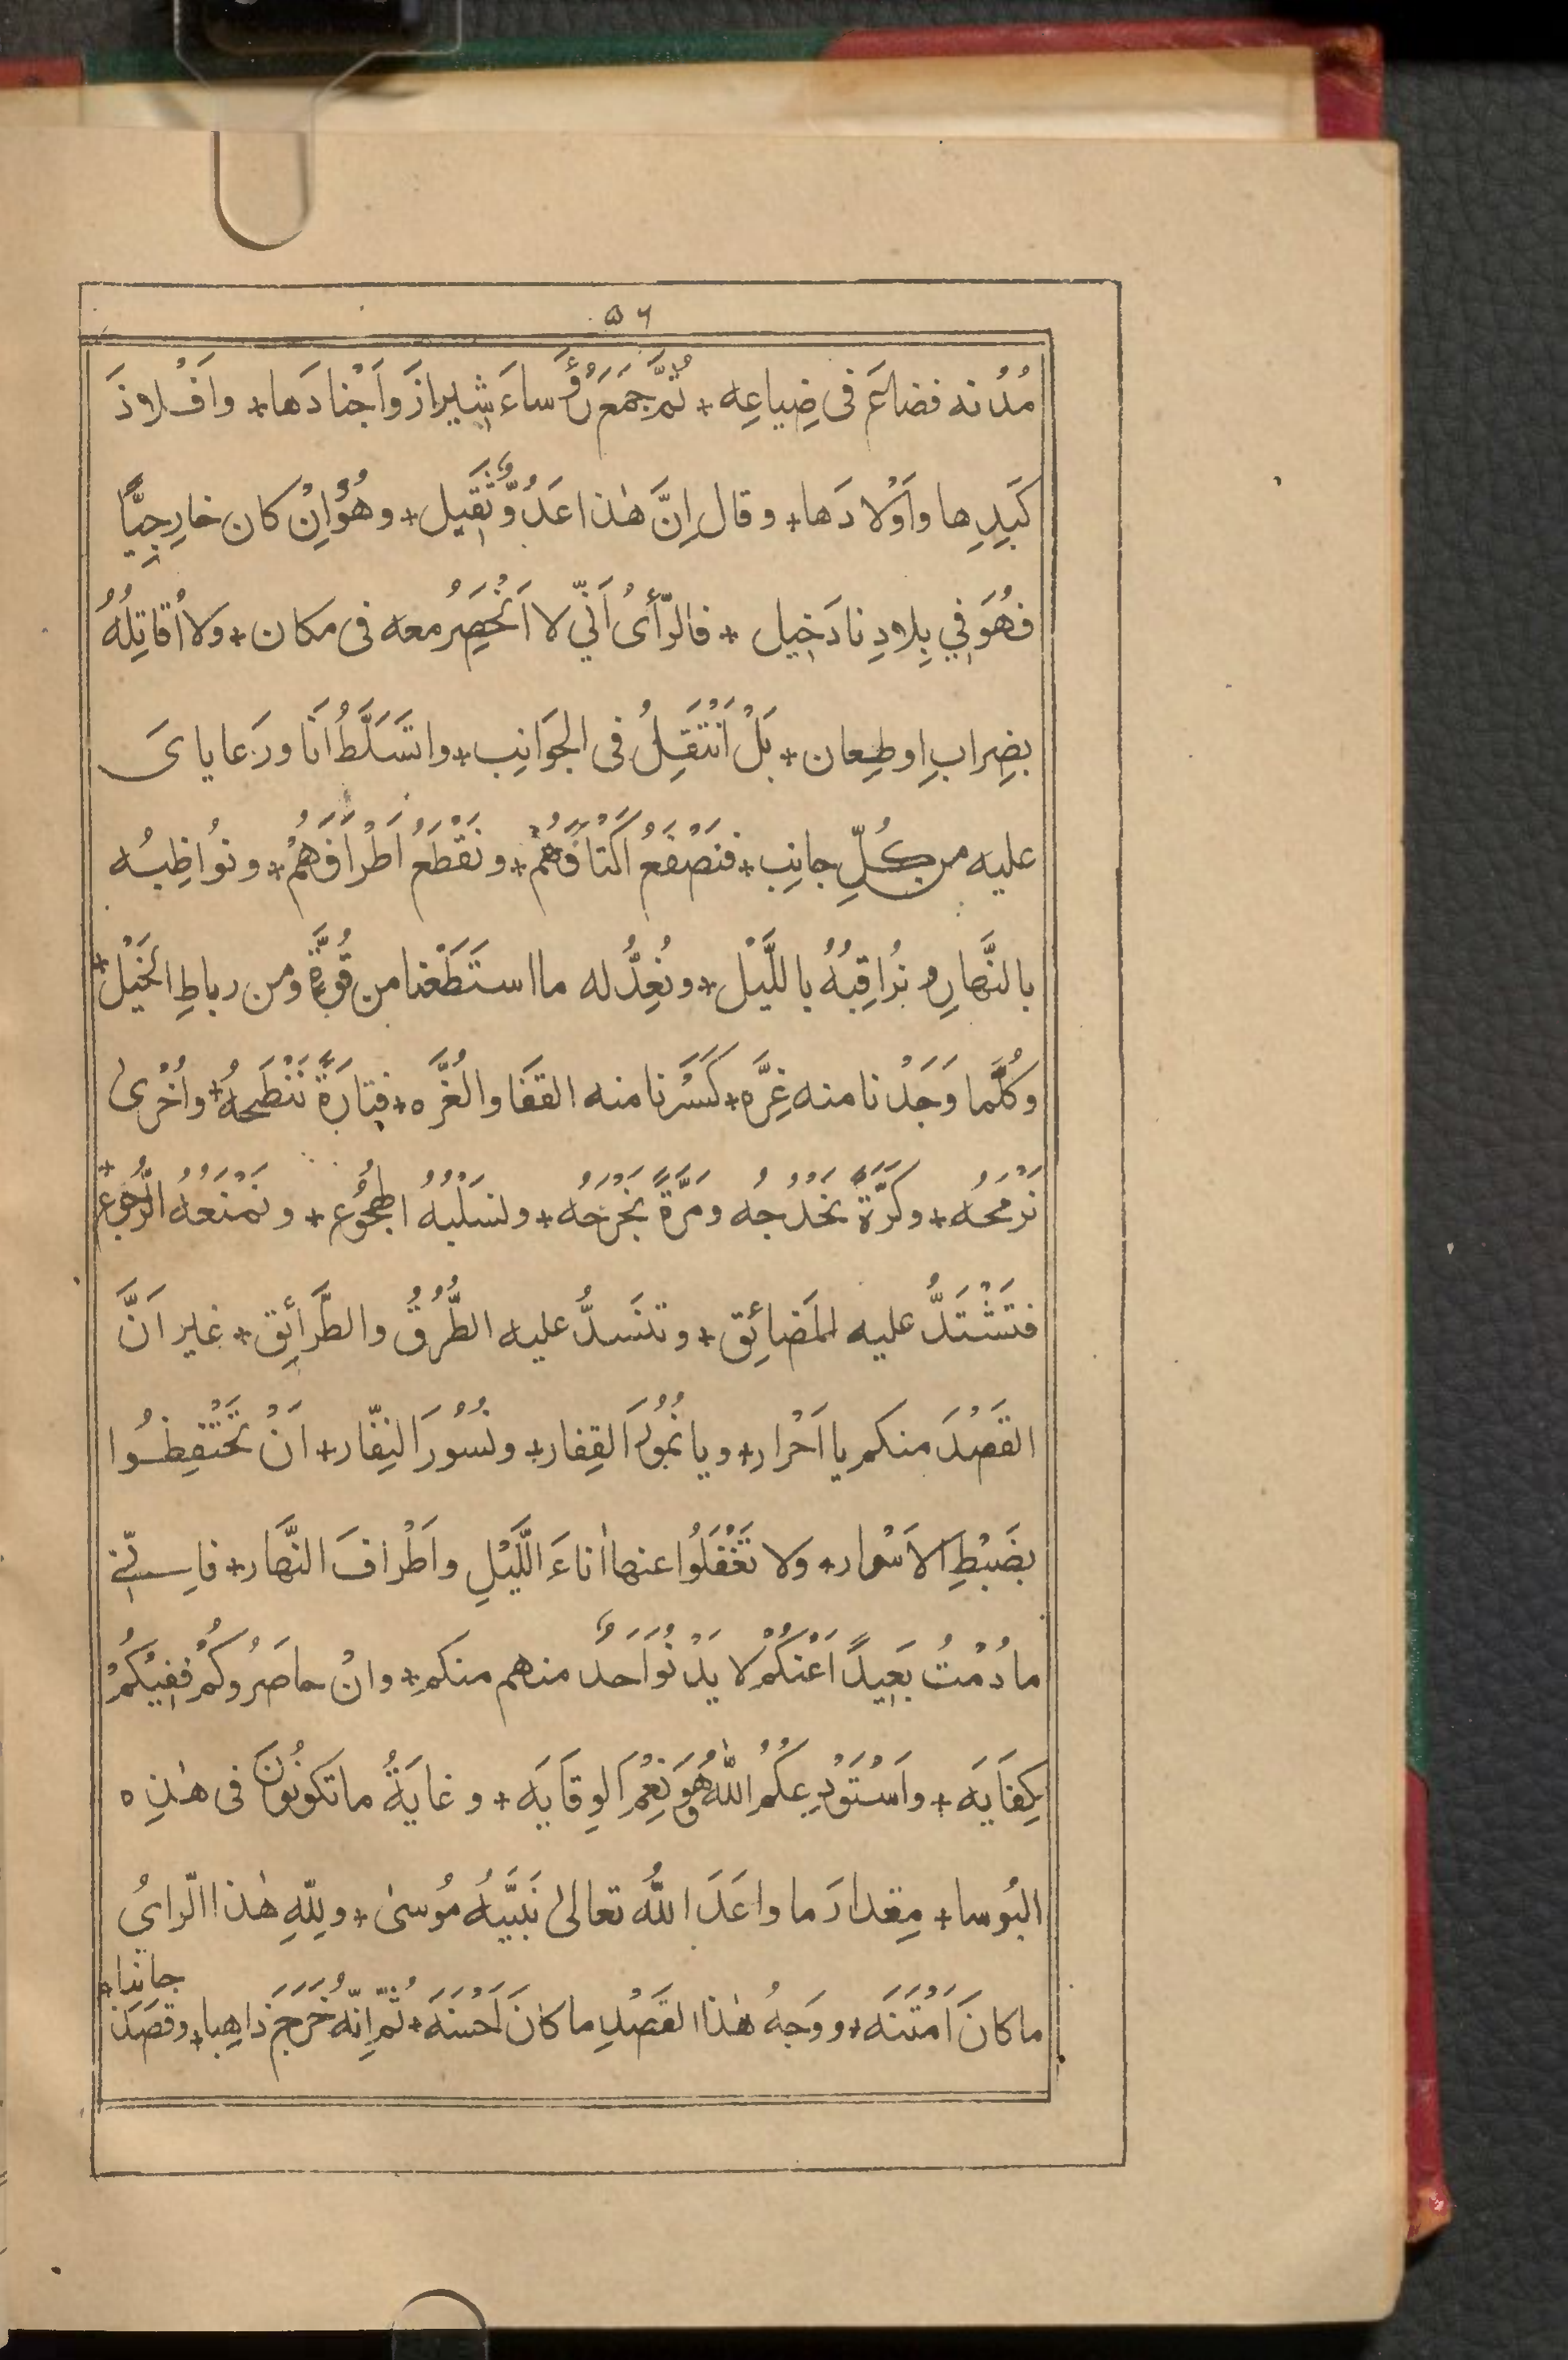 ٥٦
مُدُنه فضاعَ فى ضِياعِه + ثُمَّ جَمَعَ رُؤَساءَ شِيرازَ وَاَجْنادَها + وافْلاذَ
كَبِدِها واَوْلادَها + وقال اِنَّ هٰذا عَدُوٌّ ثَقِيل + وهُوَ اِنْ كان خارِجِيًّا
فهُوَ فِي بِلادِنا دَخِيل + فالرَّأىُ اَنِّي لا اَنْحَصِرُ معه فى مكان + ولا اُقاتِلُهُ
بضِرابٍ اوطِعان + بَلْ اَنْتَقِلُ فى الجَوَانِب + واتَسَلَّطُ اَنَا ورَعايایَ
عليه من كُلِّ جانِب + فنَصْفَعُ اَكْتافَهُمْ + ونَقْطَعُ اَطْرافَهُمْ + ونُواظِبُه
بالنَّهارِ ونُراقِبُهُ باللَّيْل + ونُعِدُّ له مااستَطَعْنا من قُوَّةٍ ومن رباطِ الخَيْل +
وكُلَّما وَجَدْنا منه غِرَّه + كَسَرْنا منه القفَا والغُرَّه + فتارَةً نَنْطَحُهُ + واُخْرىٰ
نَرْمَحُه + وكَرَّةً نَخْدِجُه ومَرَّةً نَجْرَحُه + ونسْلُبُهُ الهُجُوع + ونَمْنَعُهُ الرُّجُوع +
فتَشْتَدُّ عليه المَضائِق + وتنْسَدُّ عليه الطُّرُقُ والطَّرائِق + غير اَنَّ
القَصْدَ منكم يا اَحْرار + ويا نُمُورَ القِفار + ونُسُورَ النِفّار + اَنْ تَحْتَفِظُوا
بضَبْطِ الاَسْوار + ولا تَغْفَلُوا عنها اٰناءَ اللَّيْلِ واَطْرافَ النَّهار + فاِنّي
مادُمْتُ بَعِيدًا عَنْكُمْ لا يَدْنُو اَحَدٌ منهم منكم + وانْ حاصَرُوكُمْ ففِيْكُمْ
كِفايَه + واَسْتَوْدِعكُمُ اللّٰهَ وهُوَ نِعْمَ الوِقايَه + وغايَةُ ما تكُونُونَ فى هٰذِه
البُوسا + مِقدارَ ما واعَدَ اللّٰهُ تعالىٰ نَبِيَّهُ مُوسىٰ + ولِلّٰهِ هٰذا الّرايُ
ما كانَ اَمْتَنَه + ووَجهُ هٰذا القَصْدِ ما كانَ اَحْسَنَه + ثُمَّ اِنّهُ خَرَجَ ذاهِبا + وقصَدَ
جانبا +